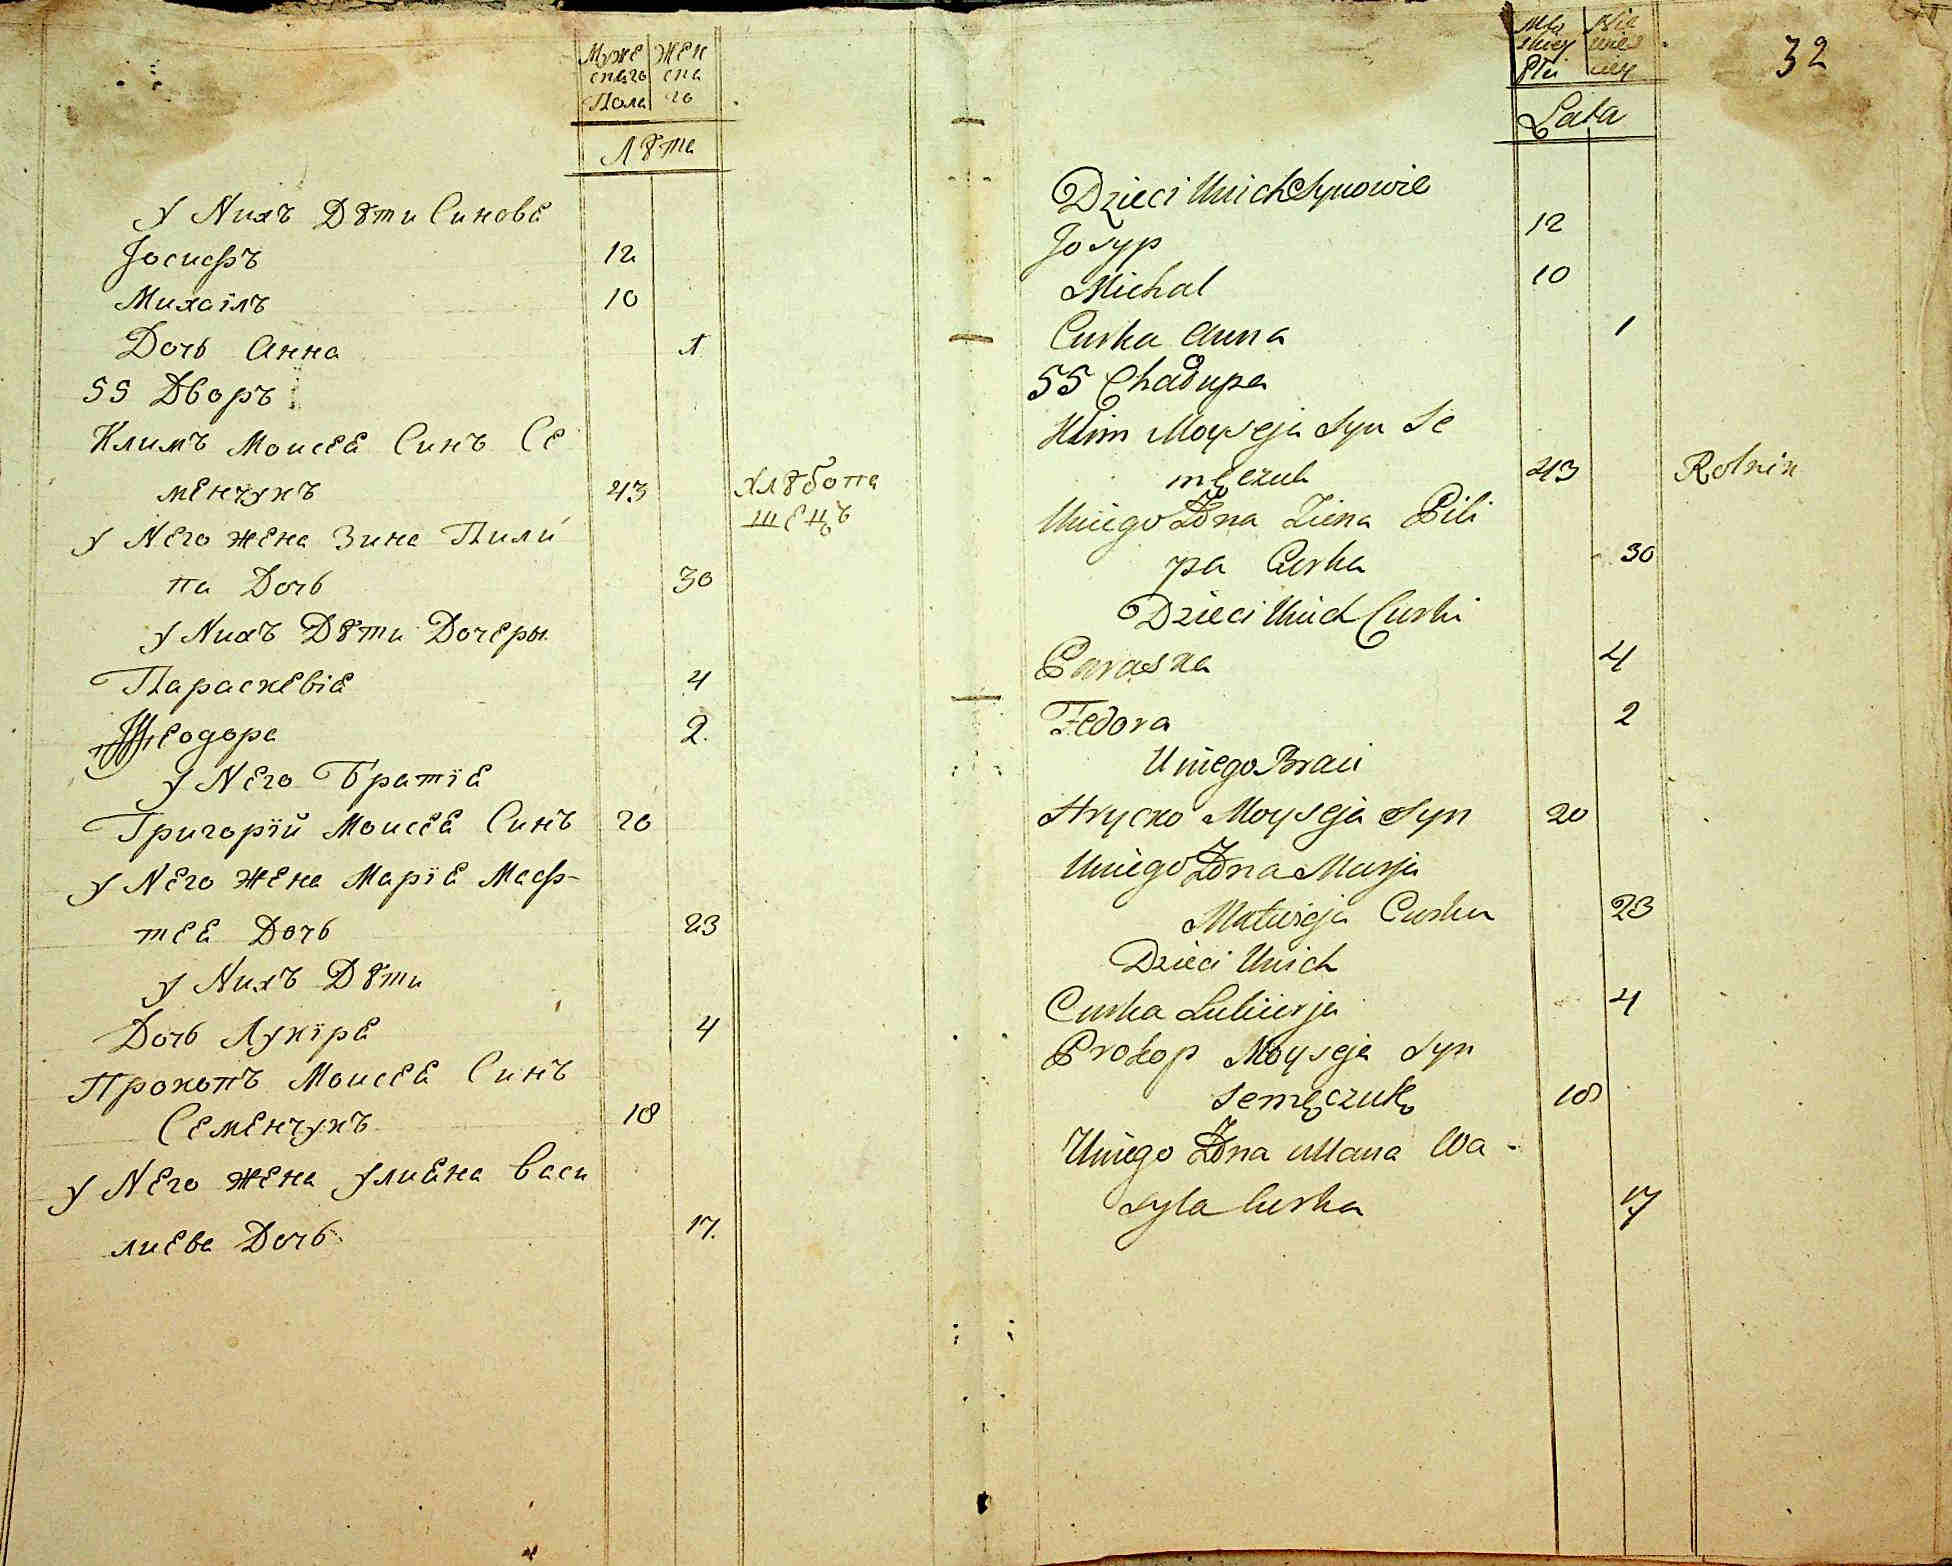 Муже Жен
скаго ска
Пола го
Лѣта
У Нихъ Дѣти Синовѐ
Іосифъ 12
Михаілъ 10
Дочь Анна 1
55 Дворъ
Климъ Моисеѐ Синъ Се
менчукъ 43 хлѣбопа
шецъ
У Него жена Зина Пили
па Дочь 30
У Нихъ Дѣти Дочеры
Параскевіѐ 4
Ѳеодора 2.
У Него Братіѐ
Григорій Моисеѐ Синъ 20
У Него жена Маріѐ Маф-
теѐ Дочь 23
У Нихъ Дѣти
Дочь Лукірѐ 4
Прокопъ Моисеѐ Синъ
Семенчукъ 18
У Него жена Улиѐна Васи
лиева Дочь 17.
32
Mę Nie
skiey wies
Płci ciey
Lata
Dzieci Unich Synowie
Josyp 12
Michal 10
Curka Anna 1
55 Chadupa
Klim Moyseja Syn Se
męczuk 43 Rolnik
Uniego Żona Ziena Pili
pa Curka 30
Dzieci Unich Curki
Paraska 4
Fedora 2
Uniego Braci
Hrycko Moyseja Syn 20
Uniego Żona Marja
Matwieja Curka 23
Dzieci Unich
Curka Lukierja 4
Prokop Moyseja Syn
Semęczuk 18
Uniego Żona Ullana Wa -
syla Curka 17